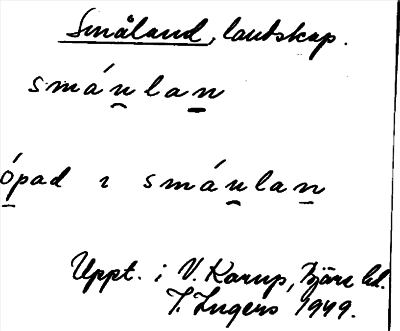 Småland, landskap.
smáu̯lan̲
ó̲pad ı smáu̯lan̲
Uppt. i V. Karup, Bjäre hd.
I. Ingers 1949.